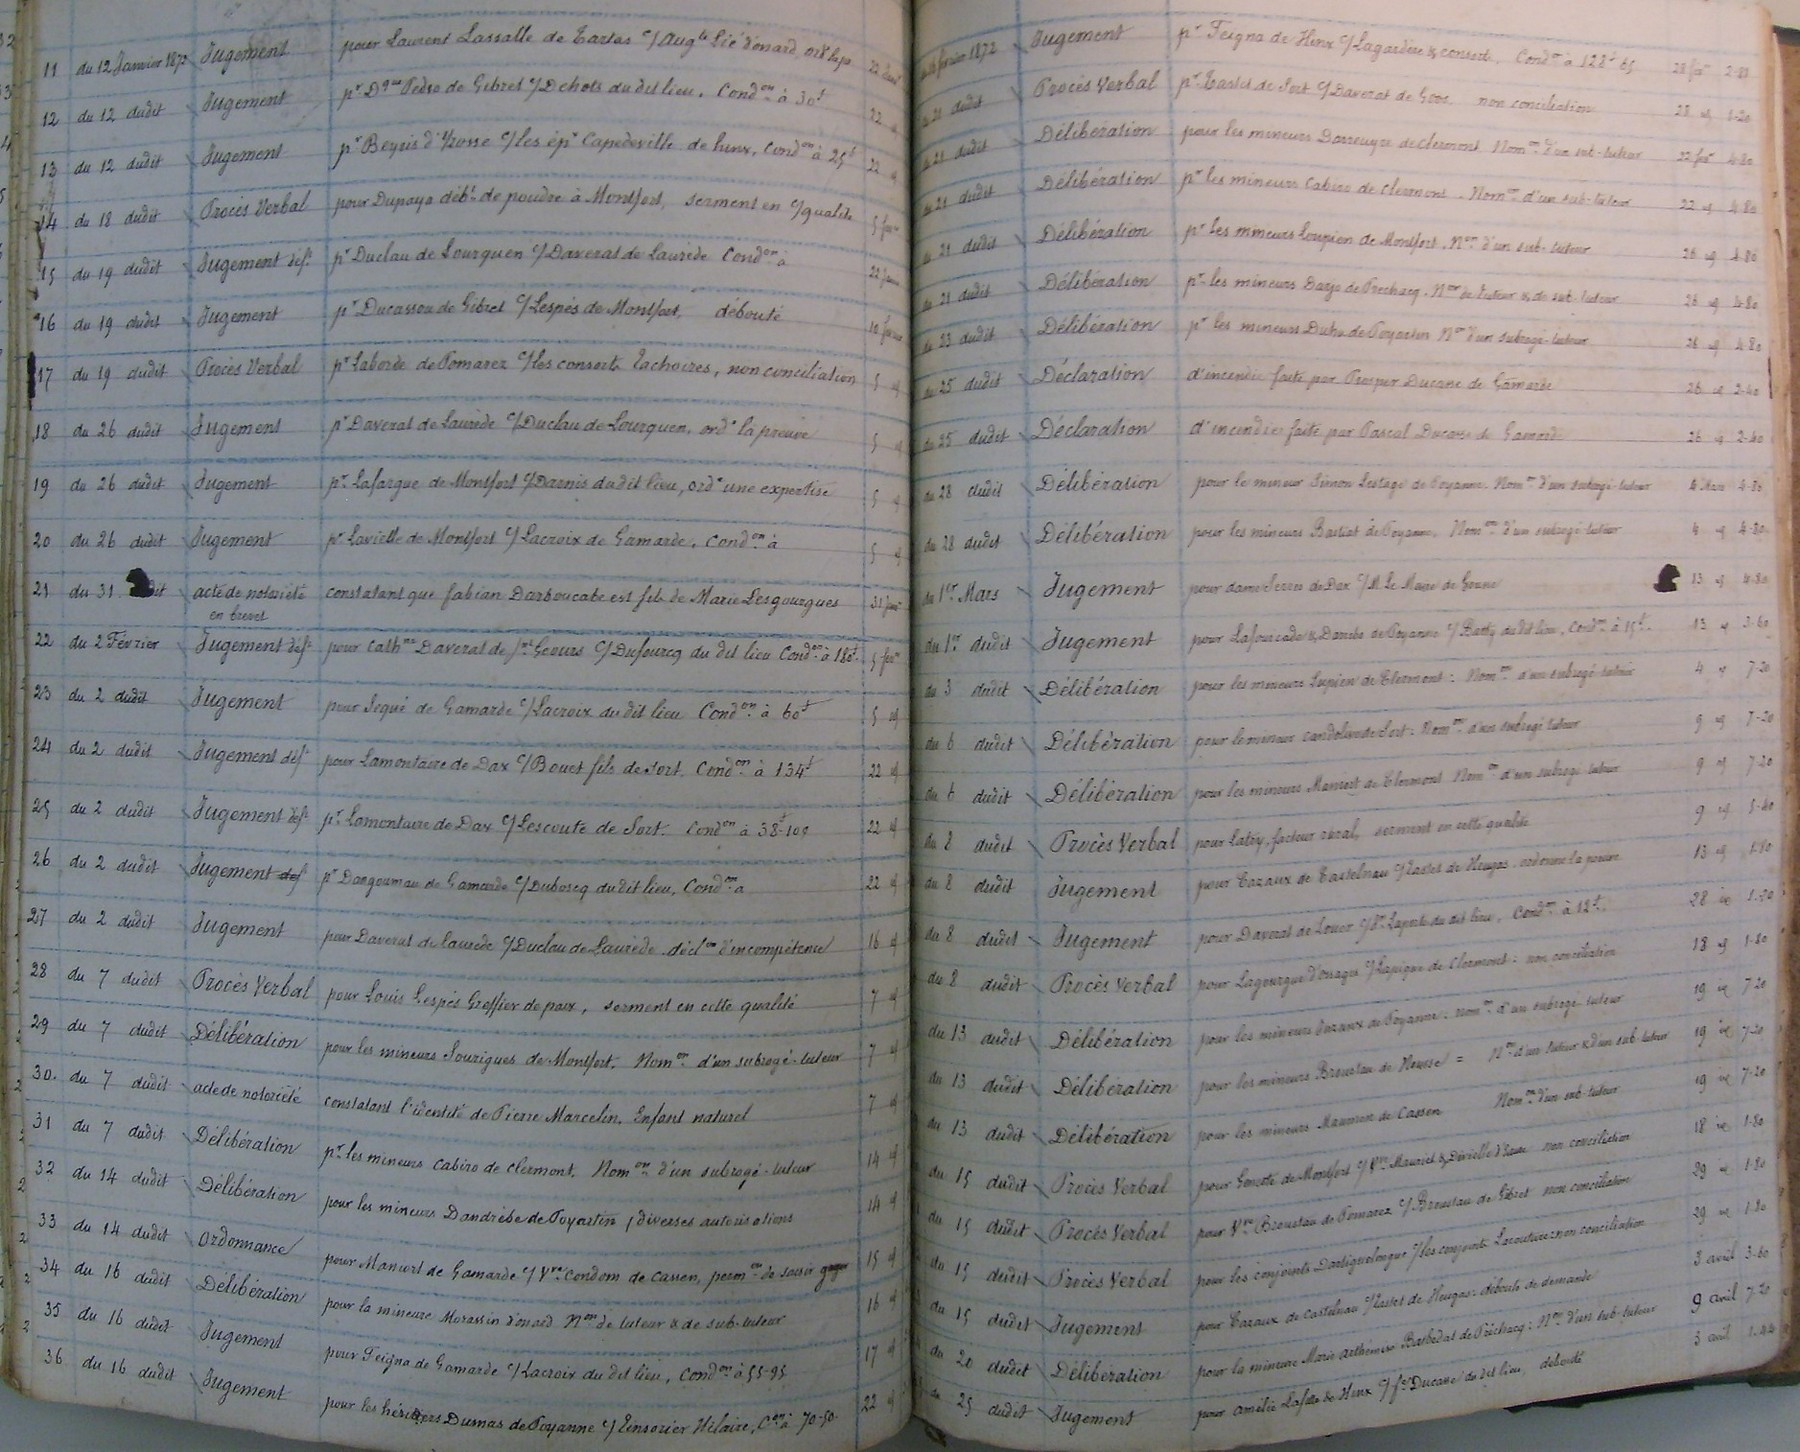 11 du 12 Janvier 1872 Jugement pour Laurent Lassalle de Tartas c/ Aug
12 du 12 dudit Jugement pr Dque Pedro de Gibret c/ Dehots du dit lieu. Condon à 30f 22
13 du 12 dudit Jugement pr Beyris d'Yzosse c/ les épx Capedeville de hinx, Condon à 25f 22
14 du 18 dudit Procès Verbal pour Dupaya débt de poudre à Montfort, serment en c/ qualité 5 fer
15 du 19 dudit Jugement déft pr Duclau de Lourquen c/ Daverat de Laurède Condon à 22
16 du 19 dudit Jugement pr Ducassou de Gibret c/ Lespès de Montfort, débouté
17 du 19 dudit Procès Verbal pr Laborde de Pomarez c/ les consorts Lachoires, non conciliation 5
18 du 26 dudit Jugement pr Daverat de Laurède c/ Duclau de Lourquen, orde la preuve 5
19 du 26 dudit Jugement pr Lafargue de Montfort c/ Darnis du dit lieu, orde une expertise 5
20 du 26 dudit Jugement pr Lavielle de Montfort c/ Lacroix de Gamarde. Condon à 5
21 du 31 dudit acte de notoriété constatant que fabian Darboucabe est fils de Marie Lesgourgues 31
en brevet
22 du 2 Février Jugement déft pour Cathne Daverat de St Geours c/ Dufourcq du dit lieu Condon à 180f 5 fer
23 du 2 dudit Jugement pour Sequé de Gamarde c/ Lacroix du dit lieu Condon à 60f 5
24 du 2 dudit Jugement déft pour Lamontaire de Dax c/ Bouet fils de Sort. Condon à 134f 22
25 du 2 dudit Jugement déft pr Lamontaire de Dax c/ Lescoute de Sort. Condon à 38f-10c 22
26 du 2 dudit Jugement def pr Dangoumau de Gamarde c/ Duboscq du dit lieu, Condon à 22
27 du 2 dudit Jugement pour Daverat de Laurède c/ Duclau de Laurède. déclon d'incompétence 16
28 du 7 dudit Procès Verbal pour Louis Lespès Greffier de paix, serment en cette qualité 7
29 du 7 dudit Délibération pour les mineurs Sourigues de Montfort. Nomon d'un subrogé-tuteur 7
30. du 7 dudit acte de notoriété constatant l'identité de Pierre Marcelin. Enfant naturel 7
31 du 7 dudit Délibération pr les mineurs Cabiro de Clermont. Nomon d'un subrogé-tuteur 14
32 du 14 dudit Délibération pour les mineurs Dandrèbe de Poyartin, diverses autorisations 14
33 du 14 dudit Ordonnance pour Manciet de Gamarde c/ Vve Condom de Cassen, permon de saisir gager 15
34 du 16 dudit Délibération pour la mineure Morassin d'onard Non de tuteur & de sub-tuteur 16
35 du 16 dudit Jugement pour Feigna de Gamarde c/ Lacroix du dit lieu, Condon à 55-95 17
36 du 16 dudit Jugement pour les héritiers Dumas de Poyanne c/ Tinsorier Hilaire, Con à 70-50 22
février 1872 Jugement pr Feigna de Hinx c/ Lagardère & consorts. Condon à 128f 2-85
du 21 dudit Procès Verbal pr Lastet de Sort c/ Daverat de Goos. non conciliation 28 1-20
du 21 dudit Délibération pour les mineurs Darreuyre de Clermont Nomon d'un sub-tuteur 22 fer 4-80
du 21 dudit Délibération pr les mineurs Cabiro de Clermont. Nomon d'un sub-tuteur 22 4-80
du 21 dudit Délibération pr les mineurs Loupien de Montfort. Non d'un sub-tuteur 26 4-80
du 21 dudit Délibération pr les mineurs Darjo de Prechacq. Non de tuteur & de sub-tuteur 26 4-80
du 23 dudit Délibération pr les mineurs Duhu de Poyartin Non d'un subrogé-tuteur 26 4-80
du 25 dudit Déclaration d'incendie faite par Prosper Ducasse de Gamarde 26 2-40
du 25 dudit Déclaration d'incendie faite par Pascal Ducasse de Gamarde 26 2-40
du 28 dudit Délibération pour le mineur Simon Lestage de Poyanne. Nomon d'un subrogé-tuteur 4 Mars 4-80
du 28 dudit Délibération pour les mineurs Bastiat de Poyanne. Nomon d'un subrogé-tuteur 4 4-80
du 1er Mars Jugement pour dame Serres de Dax c/ M. Le Maire de Gousse 13 4-80
du 1er dudit Jugement pour Lafourcade & Darribe de Poyanne c/ Batty du dit lieu, Condon à 15f 13 3-60
du 3 dudit Délibération pour les mineurs Lupien de Clermont: Nomon d'un subrogé-tuteur 4 7-20
du 6 dudit Délibération pour le mineur Candolive de Sort: Nomon d'un subrogé tuteur 9 7-20
du 6 dudit Délibération pour les mineurs Manciet de Clermont Nomon d'un subrogé tuteur 9 7-20
du 8 dudit Procès Verbal pour Latéy, facteur rural, serment en cette qualité 9 5-40
du 8 dudit Jugement pour Cazaux de Castelnau c/ Lastet de Heugas. ordonne la preuve 13 1-80
du 8 dudit Jugement pour Daverat de Louer c/ Laporte du dit lieu. Condon à 12f 28 1-20
du 8 dudit Procès Verbal pour Lagourgue d'ossages c/ Lapique de Clermont: non conciliation 18 1-80
du 13 dudit Délibération pour les mineurs Duzaux de Poyanne: nomon d'un subrogé-tuteur 19 7-20
du 13 dudit Délibération pour les mineurs Broustau de Nousse = Non d'un tuteur & d'un sub-tuteur 19 7-20
du 13 dudit Délibération pour les mineurs Maumen de Cassen Nomon d'un sub-tuteur 19 7-20
du 15 dudit Procès Verbal pour Goncote de Montfort c/ Vve Mauriet & Devielle non conciliation 18 1-80
du 15 dudit Procès Verbal pour Vve Broustau de Pomarez c/ Broustau de Gibret non conciliation 29 1-80
du 15 dudit Procès Verbal pour les conjoints Dartiguelongue c/ les conjoints Lacouture: non conciliation 29 1-80
du 15 dudit Jugement pour Cazaux de Castelnau c/ Lastet de Heugas: déboute de demande 3 avril 3-60
du 20 dudit Délibération pour la mineure Marie arthémise Barbedat de Préchacq: Non d'un sub-tuteur 9 avril 7-20
du 25 dudit Jugement pour amélie Lafitte de Hinx c/ Ducasse du dit lieu débouté 3 avril 1-44